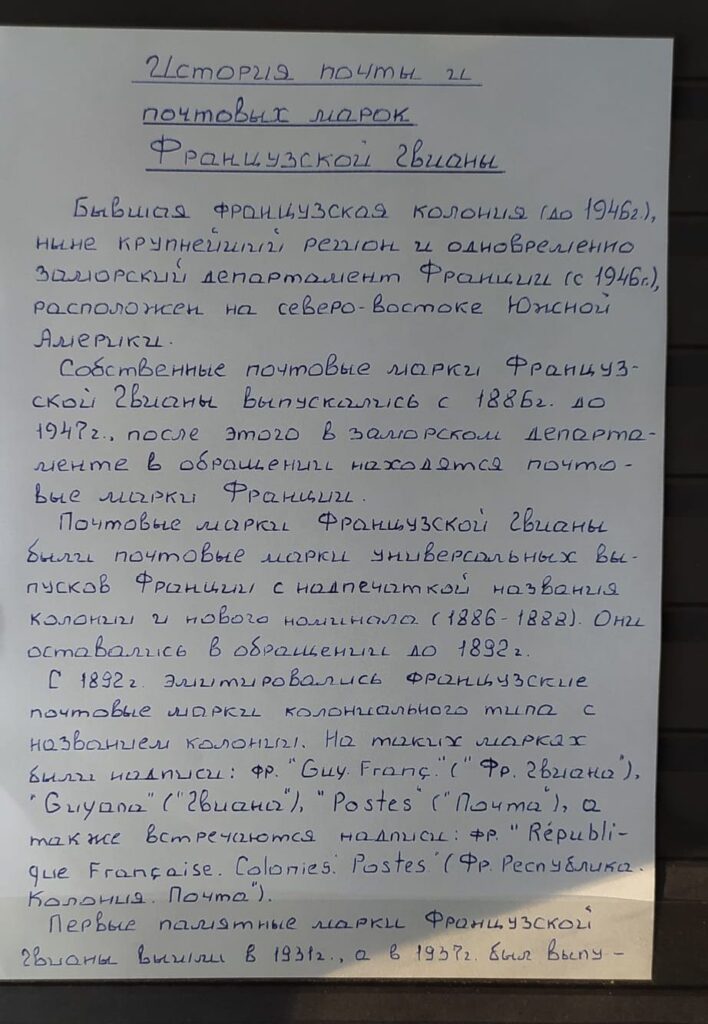 История почты и
почтовых марок
Французской Гвианы
Бывшая французская колония (до 1946г.),
ныне крупнейший регион и одновременно
заморский департамент Франции (с 1946г.),
расположен на северо-востоке Южной
Америки.
Собственные почтовые марки Француз-
ской Гвианы выпускались с 1886г. до
1947г., после этого в заморском департа-
менте в обращении находятся почто-
вые марки Франции.
Почтовые марки Французской Гвианы
были почтовые марки универсальных вы-
пусков Франции с надпечаткой названия
колонии и нового номинала (1886-1888). Они
оставались в обращении до 1892г.
С 1892г. эмитировались французские
почтовые марки колониального типа с
названием колонии. На таких марках
были надписи: фр. "Guy. Franç." ("Фр. Гвиана"),
"Guyana" ("Гвиана"), "Postes" ("Почта"), а
также встречаются надписи: фр. "Républi-
que Française. Colonies. Postes" (Фр. Республика.
Колония. Почта").
Первые памятные марки Французской
Гвианы вышли в 1931г., а в 1937г. был выпу-